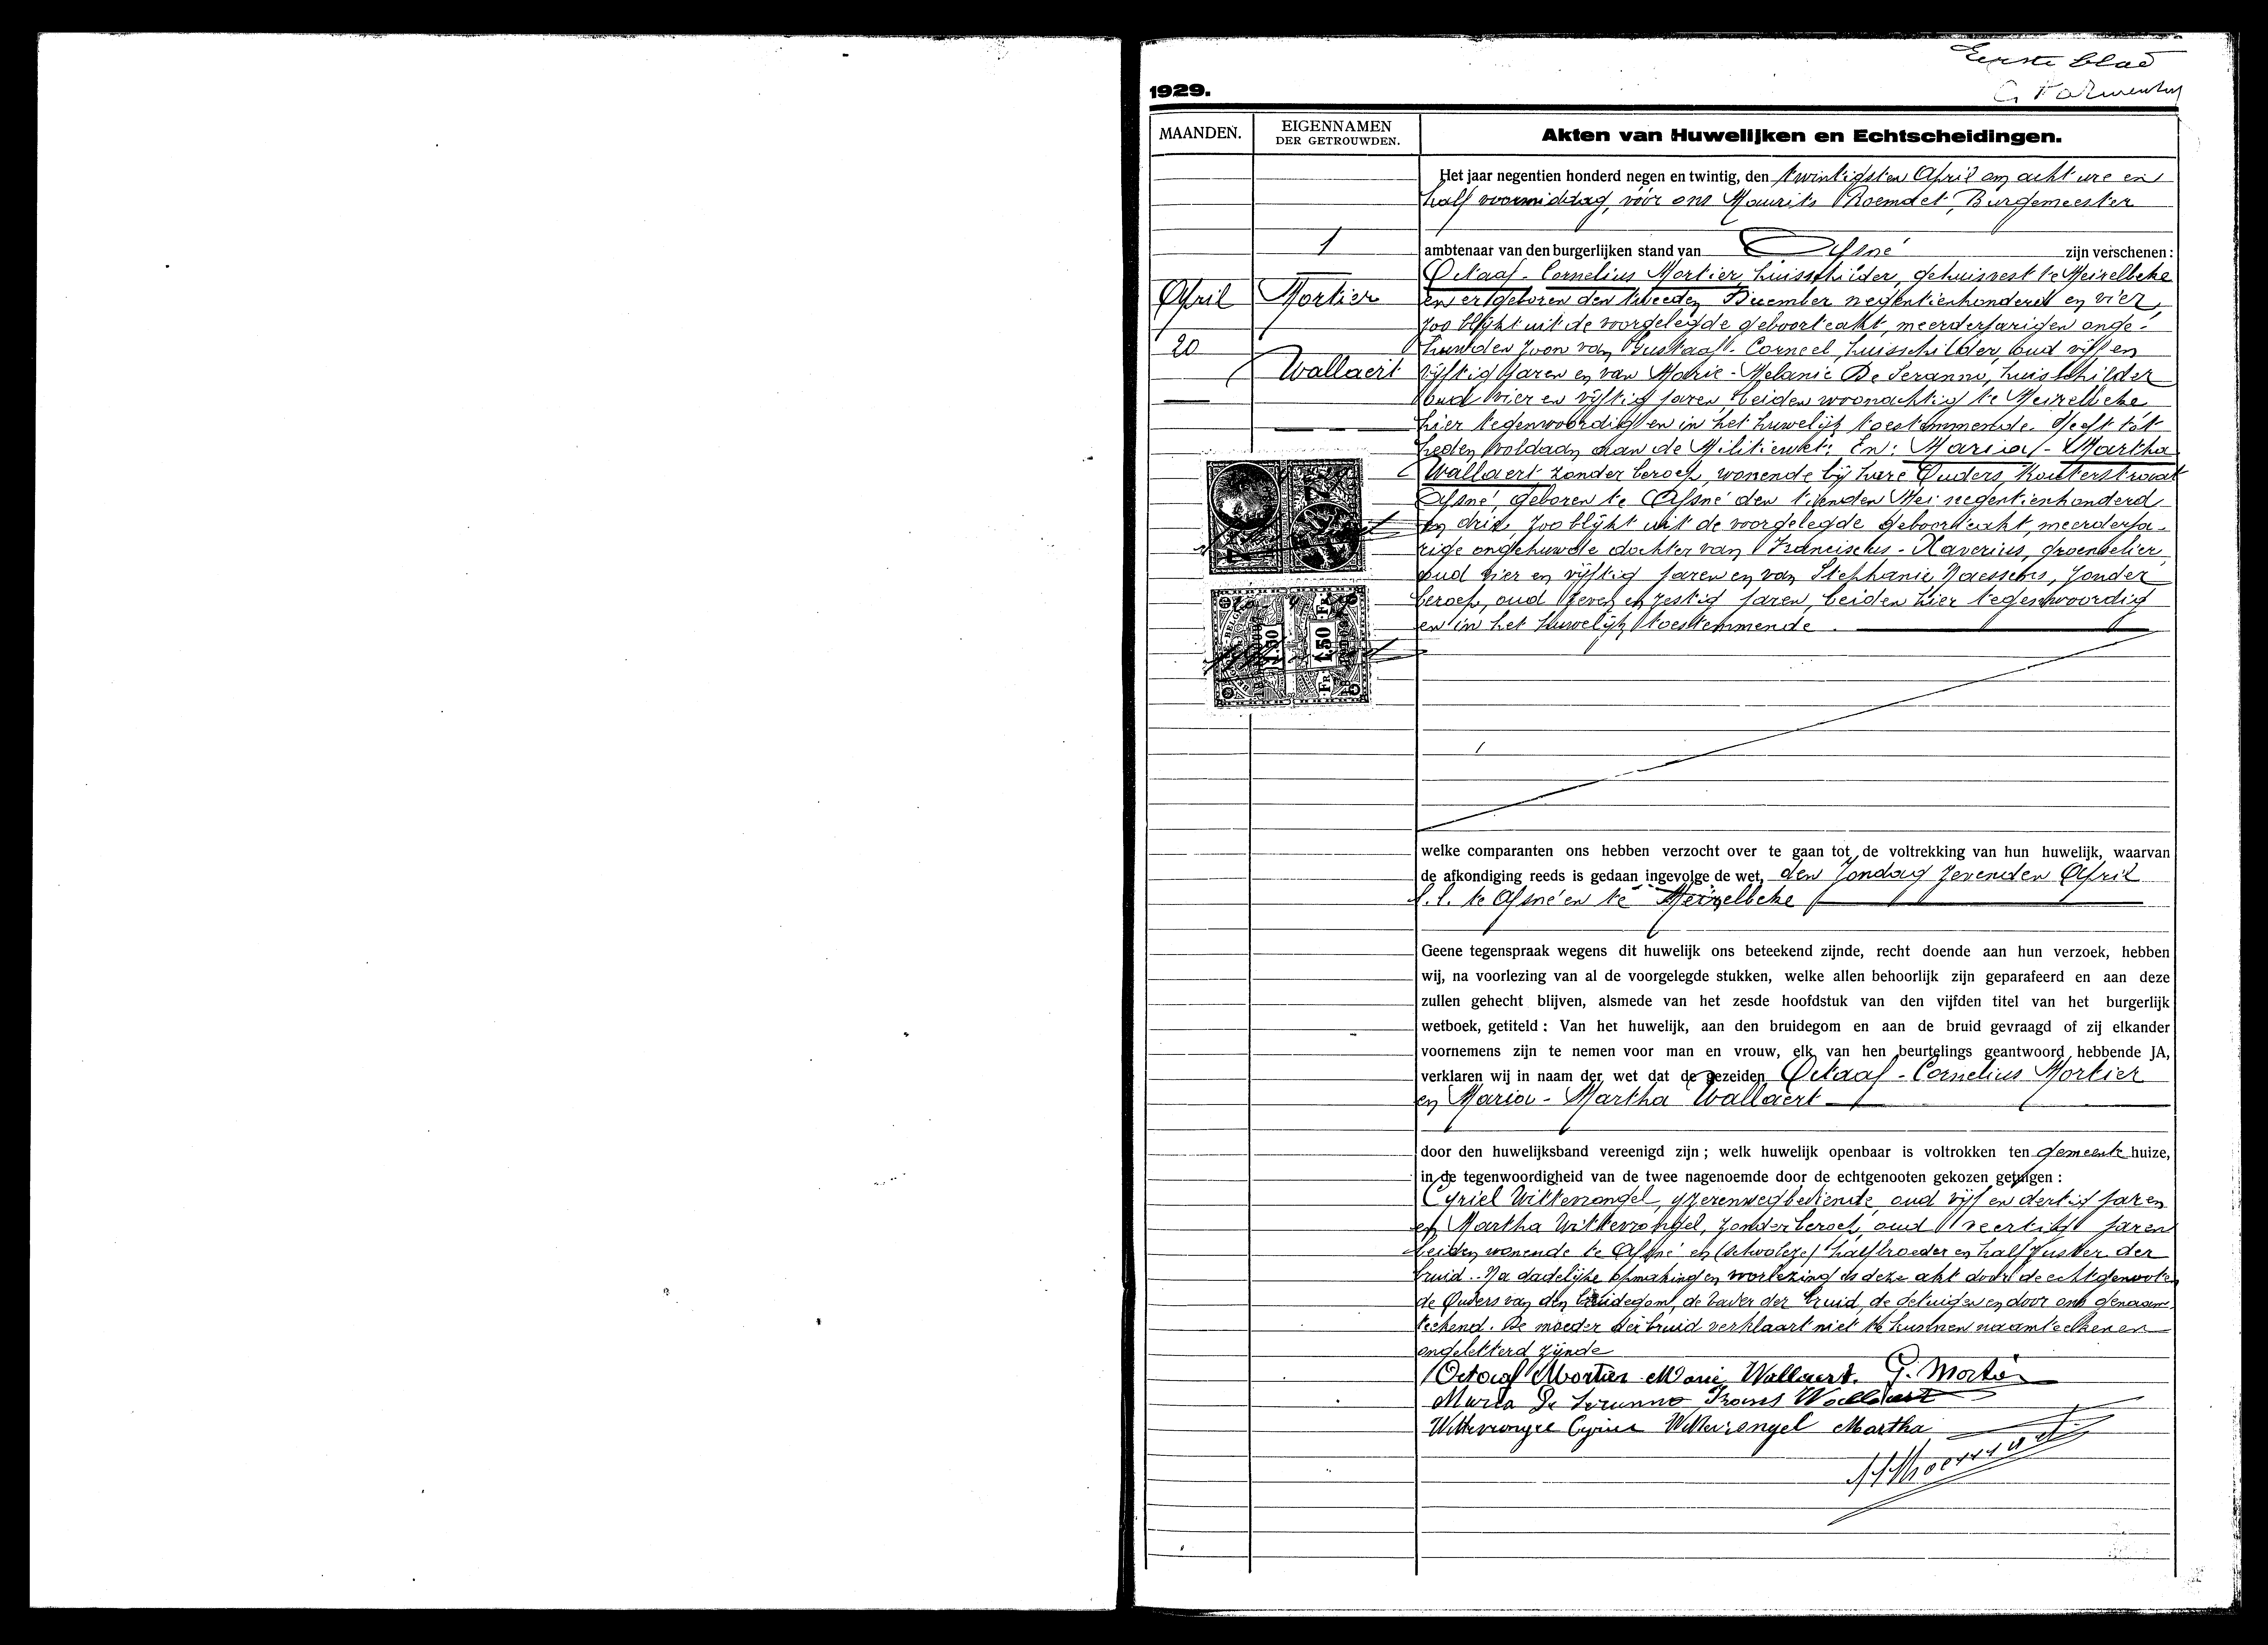 Eerste blad
1929.
MAANDEN.
EIGENNAMEN
DER GETROUWDEN.
Akten van Huwelijken en Echtscheidingen.
Het jaar negentien honderd negen en twintig, den twintigsten April om acht ure en
half voormiddag, vóór ons Maurits Roemdet, Burgemeester
1
ambtenaar van den burgerlijken stand van Afsné zijn verschenen :
Octaaf - Cornelius Mortier, huisschilder, gehuisvest te Meirelbeke
April
Mortier
en er geboren den tweeden December negentienhonderd en vier,
zoo blijkt uit de voorgelegde geboorteakt, meerderjarigen onge-
20
huwden zoon van Gustaaf - Corneel, huisschilder, oud vijf en
Wallaert
vijftig jaren en van Marie - Melanie De Seranno, huisschilder
oud vier en vijftig jaren, beiden woonachtig te Meirelbeke
hier tegenwoordig en in het huwelijk toestemmende. Heeft tot
heden voldaan aan de Militiewet; En: Maria - Martha
Wallaert zonder beroep, wonende bij hare Ouders, Kouterstraat
Afsné, geboren te Afsné den tienden Mei negentienhonderd
en drie, zoo blijkt uit de voorgelegde geboorteakt, meerderja-
rige ongehuwde dochter van Franciscus - Xaverius, groenselier
oud vier en vijftig jaren en van Stephanie Naessens, zonder
beroep, oud zeven en zestig jaren, beiden hier tegenwoordig
en in het huwelijk toestemmende.
1.50
FR
1.50
FR
welke comparanten ons hebben verzocht over te gaan tot de voltrekking van hun huwelijk, waarvan
de afkondiging reeds is gedaan ingevolge de wet, den Zondag zevenden April
l.l. te Afsné en te Meirelbeke
Geene tegenspraak wegens dit huwelijk ons beteekend zijnde, recht doende aan hun verzoek, hebben
wij, na voorlezing van al de voorgelegde stukken, welke allen behoorlijk zijn geparafeerd en aan deze
zullen gehecht blijven, alsmede van het zesde hoofdstuk van den vijfden titel van het burgerlijk
wetboek, getiteld : Van het huwelijk, aan den bruidegom en aan de bruid gevraagd of zij elkander
voornemens zijn te nemen voor man en vrouw, elk van hen beurtelings geantwoord hebbende JA,
verklaren wij in naam der wet dat de gezeiden Octaaf - Cornelius Mortier
en Maria - Martha Wallaert
door den huwelijksband vereenigd zijn ; welk huwelijk openbaar is voltrokken ten gemeente huize,
in de tegenwoordigheid van de twee nagenoemde door de echtgenooten gekozen getuigen :
Cyriel Wittevrongel, yzerenwegbediende, oud vijf en dertig jaren
en Martha Wittevrongel, zonder beroep, oud veertig jaren
beiden wonende te Afsné en halfbroeder en halfzuster der
bruid. - Na dadelijke opmaking en voorlezing is deze akt door de echtgenooten
de Ouders van den bruidegom, de vader der bruid, de getuigen en door ons genaam-
teekend. De moeder der bruid verklaart niet te kunnen naamteekenen
ongeletterd zijnde
Octaaf Mortier Marie Wallaert. G. Mortier
Maria De Seranno Frans Wallaert
Wittevrongel Cyriel Wittevrongel Martha